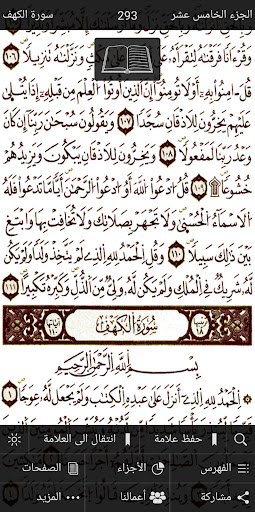 سورة الكهف 293 الجزء الخامس عشر
وَقُرْءَانًا فَرَقْنَٰهُ لِتَقْرَأَهُۥ وَنَزَّلْنَٰهُ تَنزِيلًا ١٠٦
قُلْ ءَامِنُوا۟ بِهِۦٓ أَوْ لَا تُؤْمِنُوٓا۟ إِنَّ ٱلَّذِينَ أُوتُوا۟ ٱلْعِلْمَ مِن قَبْلِهِۦٓ إِذَا يُتْلَىٰ
عَلَيْهِمْ يَخِرُّونَ لِلْأَذْقَانِ سُجَّدًا ١٠٧ وَيَقُولُونَ سُبْحَٰنَ رَبِّنَآ إِن كَانَ
وَعْدُ رَبِّنَا لَمَفْعُولًا ١٠٨ وَيَخِرُّونَ لِلْأَذْقَانِ يَبْكُونَ وَيَزِيدُهُمْ
خُشُوعًا ۩ ١٠٩ قُلِ ٱدْعُوا۟ ٱللَّهَ أَوِ ٱدْعُوا۟ ٱلرَّحْمَٰنَ أَيًّا مَّا تَدْعُوا۟ فَلَهُ
ٱلْأَسْمَآءُ ٱلْحُسْنَىٰ وَلَا تَجْهَرْ بِصَلَاتِكَ وَلَا تُخَافِتْ بِهَا وَٱبْتَغِ
بَيْنَ ذَٰلِكَ سَبِيلًا ١١٠ وَقُلِ ٱلْحَمْدُ لِلَّهِ ٱلَّذِى لَمْ يَتَّخِذْ وَلَدًا وَلَمْ يَكُن
لَّهُۥ شَرِيكٌ فِى ٱلْمُلْكِ وَلَمْ يَكُن لَّهُۥ وَلِىٌّ مِّنَ ٱلذُّلِّ وَكَبِّرْهُ تَكْبِيرًۢا ١١١
سُورَةُ الكَهْفِ
بِسْمِ ٱللَّهِ ٱلرَّحْمَٰنِ ٱلرَّحِيمِ
ٱلْحَمْدُ لِلَّهِ ٱلَّذِىٓ أَنزَلَ عَلَىٰ عَبْدِهِ ٱلْكِتَٰبَ وَلَمْ يَجْعَل لَّهُۥ عِوَجَا ١
حفظ علامة انتقال الى العلامة
الفهرس الأجزاء الصفحات
مشاركة أعمالنا المزيد